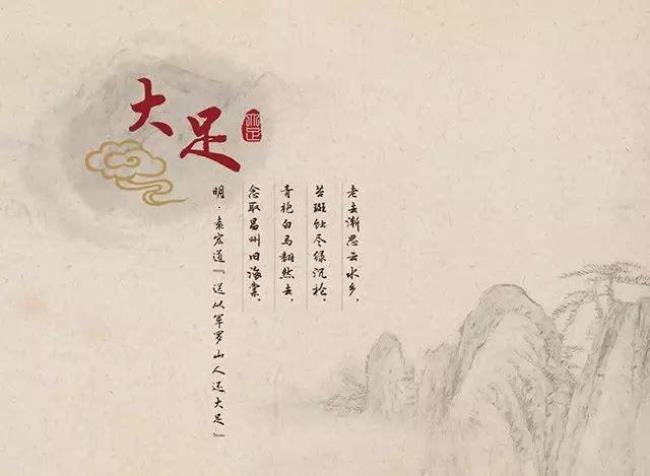 大足
大足
老去渐思云水乡，
苔斑蚀尽绿沉枪，
青袍白马翩然去，
念取昌州旧海棠。
明·袁宏道『送从军罗山人还大足』